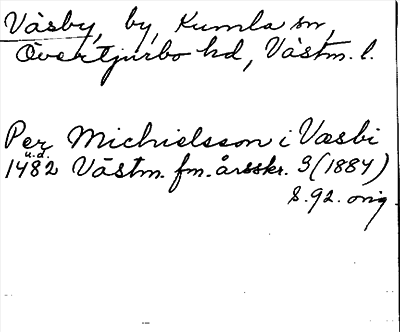 Väsby, by, Kumla sn,
Övertjurbo hd, Västm. l.
Per Michielsson i Væsbi
u.d.
1482 Västm. fm. årsskr. 3 (1884)
S. 92. orig.